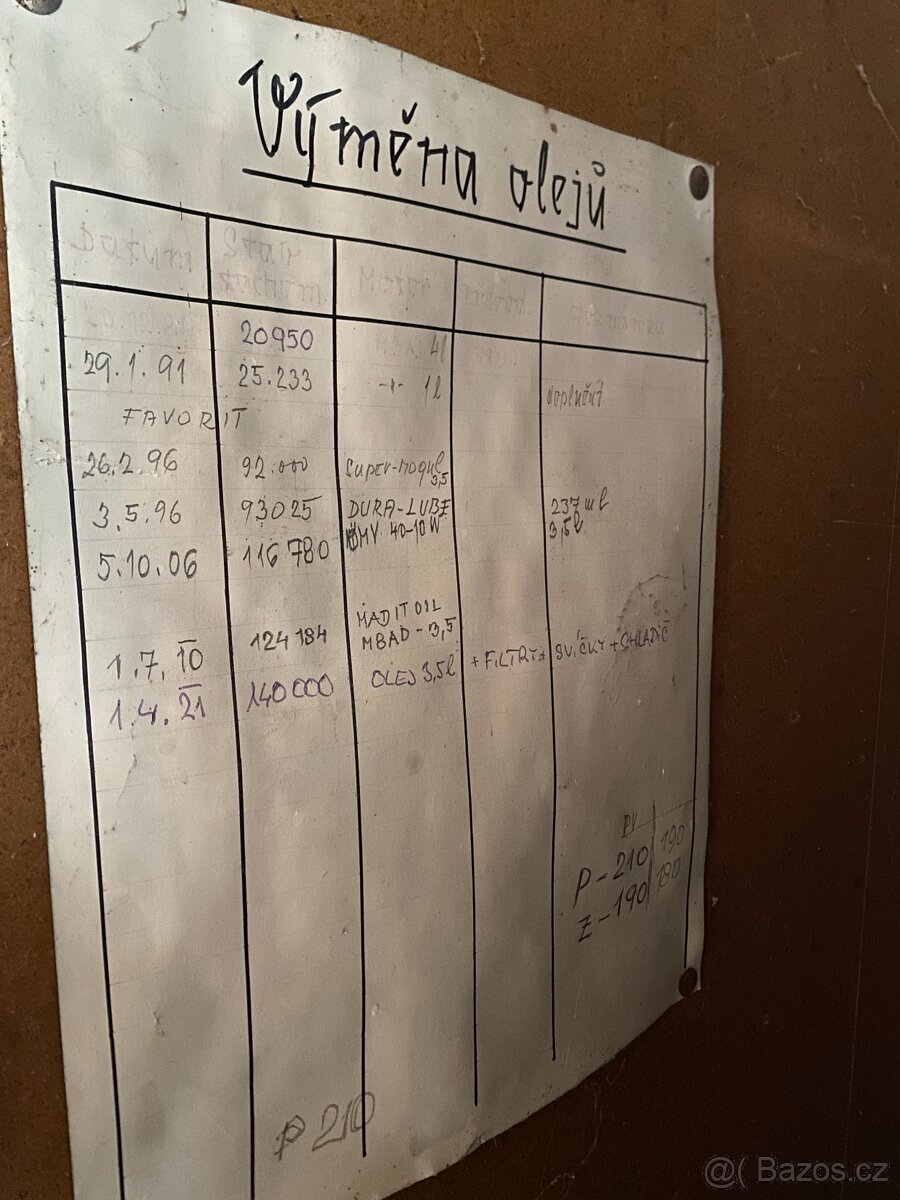 Výměna olejů
Datum Stav tachom. Motor
20950 4l
29.1.91 25.233 -"- 1l doplnění
FAVORIT
26.2.96 92.000 SUPER-MOGUL 3,5
3.5.96 93025 DURA-LUBE 237 ml
5.10.06 116780 ÖMV 40-10W 3,5l
1.7.10 124184 MADIT OIL
M8AD-3,5
1.4.21 140000 OLEJ 3,5l + FILTRY + SVÍČKY + CHLADIČ
P-210 190
Z-190 180
P 210
@( Bazos.cz